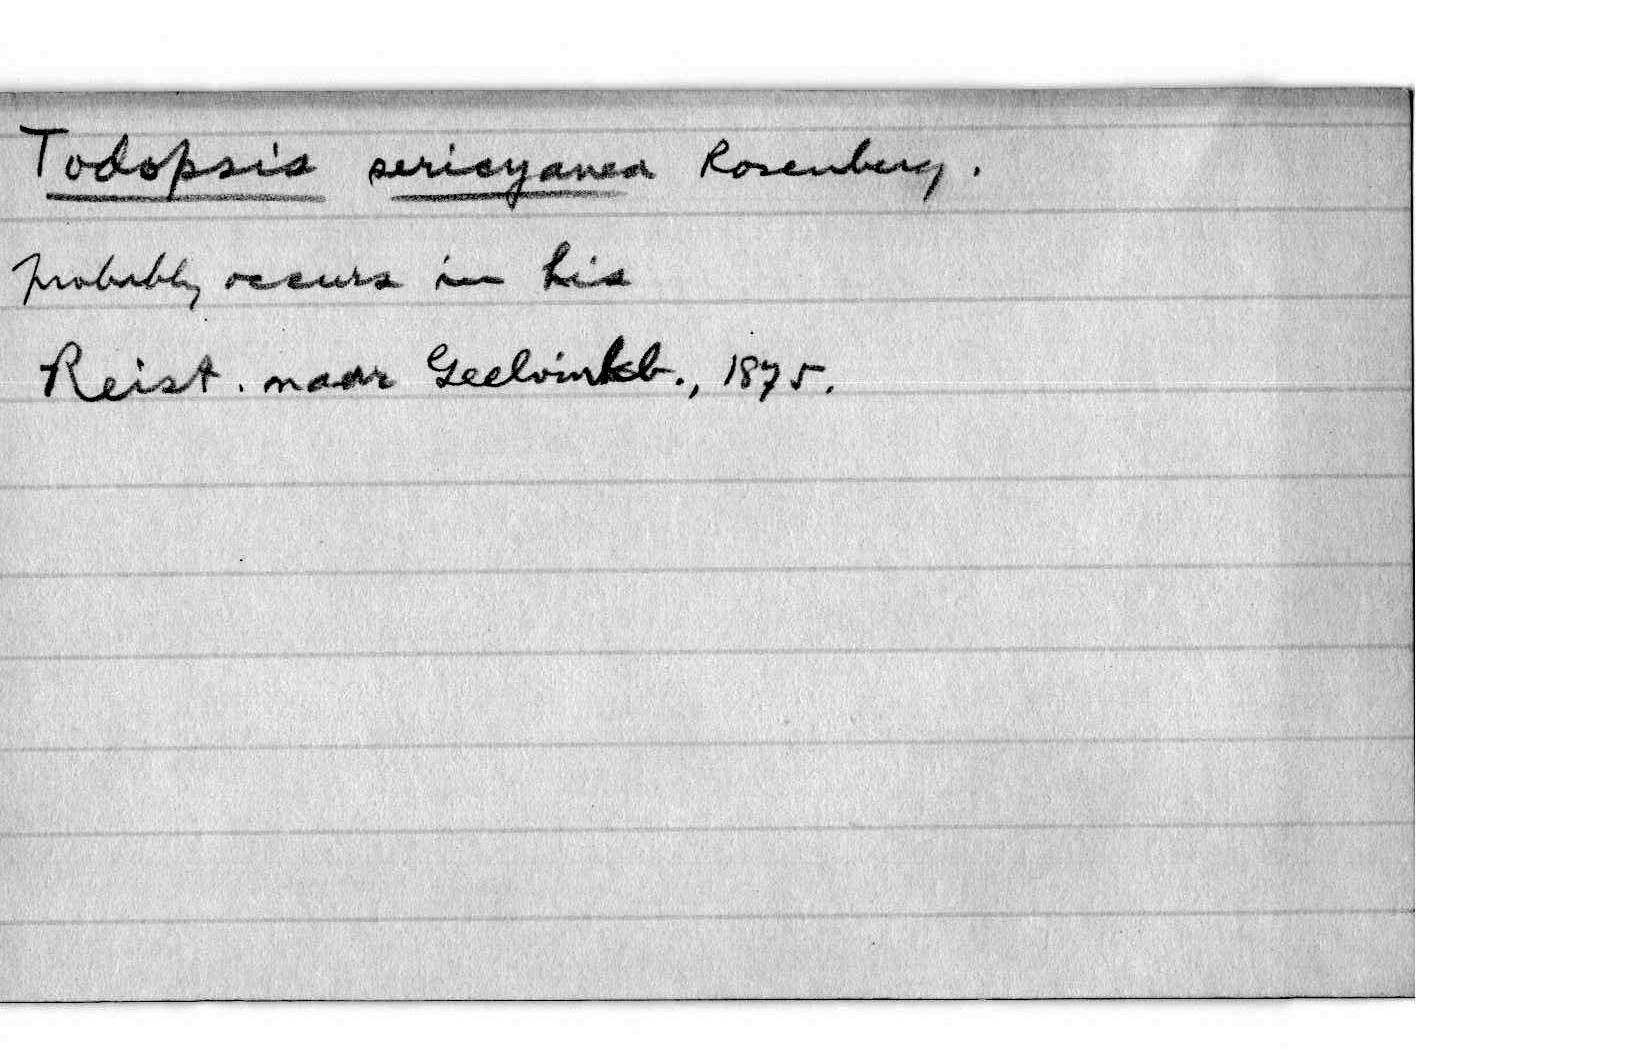 Todopsis sericyanea Rosenberg.
Probably occurs in his
Reist. naar Geelvinkb., 1875.